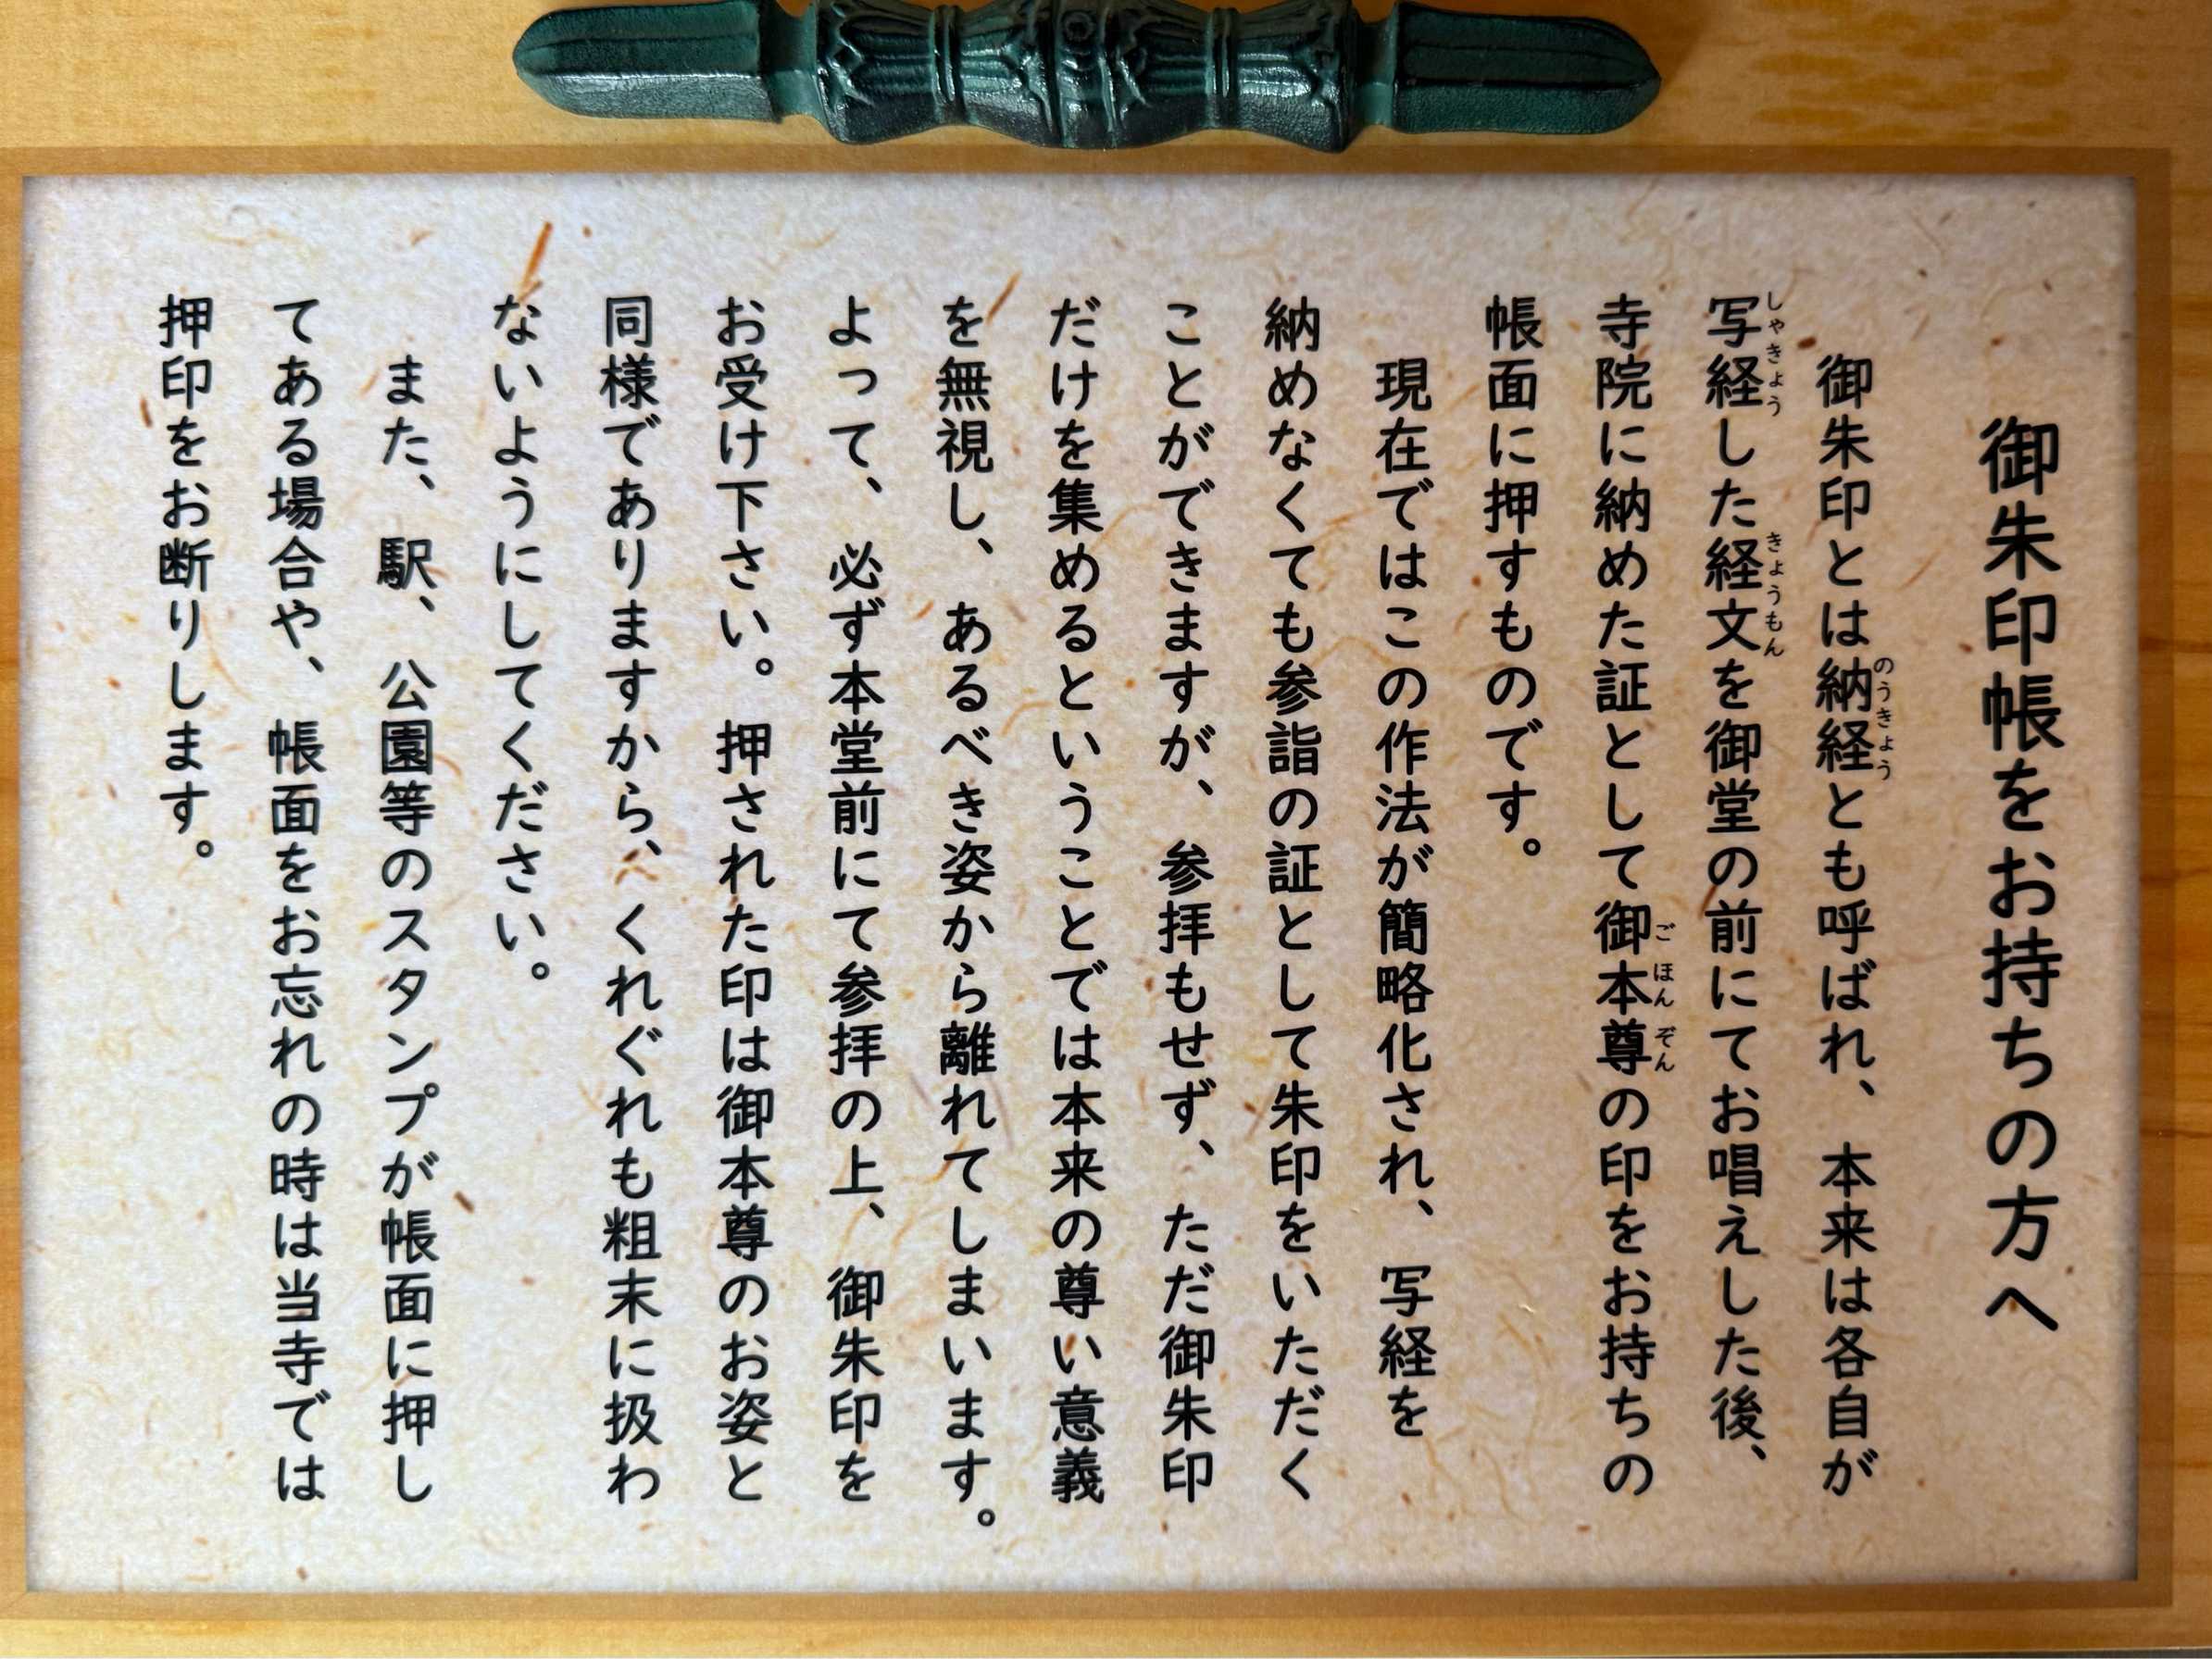 御朱印帳をお持ちの方へ
御朱印とは納経とも呼ばれ、本来は各自が
写経した経文を御堂の前にてお唱えした後、
寺院に納めた証として御本尊の印をお持ちの
帳面に押すものです。
現在ではこの作法が簡略化され、写経を
納めなくても参詣の証として朱印をいただく
ことができますが、参拝もせず、ただ御朱印
だけを集めるということでは本来の尊い意義
を無視し、あるべき姿から離れてしまいます。
よって、必ず本堂前にて参拝の上、御朱印を
お受け下さい。押された印は御本尊のお姿と
同様でありますから、くれぐれも粗末に扱わ
ないようにしてください。
また、駅、公園等のスタンプが帳面に押し
てある場合や、帳面をお忘れの時は当寺では
押印をお断りします。